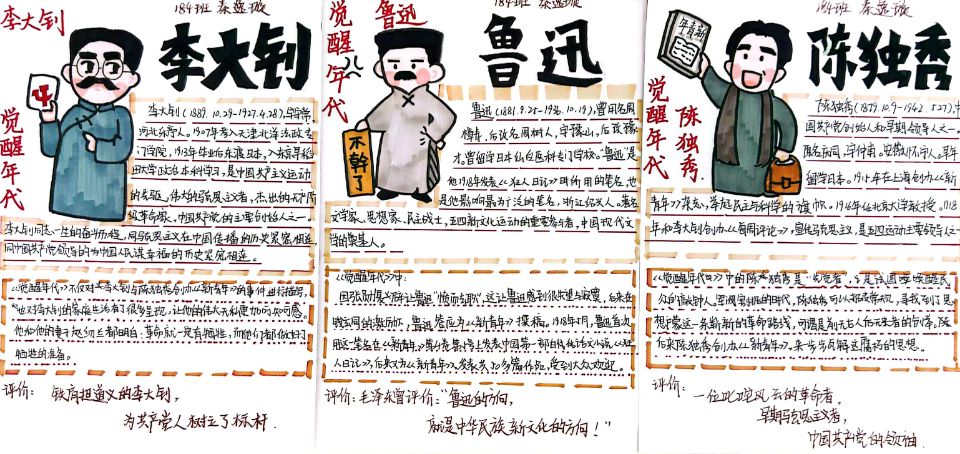 184班 秦逸璇
李大钊
觉醒年代
李大钊
李大钊(1889.10.29-1927.4.28),字守常,
河北乐亭人。1907年考入天津北洋法政专
门学院,1913年毕业后东渡日本,入东京早稻
田大学政治本科学习,是中国共产主义运动
的先驱,伟大的马克思主义者,杰出的无产阶
级革命家、中国共产党的主要创始人之一。
李大钊同志一生的奋斗历程,同马克思主义在中国传播的历史紧密相连,
同中国共产党领导的为中国人民谋幸福的历史紧密相连。
《觉醒年代》不仅对李大钊与陈独秀创办《新青年》的事件进行描写,
也对李大钊的家庭生活有了很多呈现,让他的伟大无私更加可知可感。
他和他的妻子赵纫兰都明白:革命就一定有牺牲,而他们都做好了
牺牲的准备。
评价: 铁肩担道义的李大钊,
为共产党人树立了标杆.
184班 秦逸璇
觉醒年代
鲁迅
鲁迅
不幹了
鲁迅(1881.9.25-1936.10.19),曾用名周
樟寿,后改名周树人,字豫山,后改豫
才,曾留学日本仙台医科专门学校。"鲁迅"是
他1918年发表《狂人日记》时所用的笔名,也
是他影响最为广泛的笔名,浙江绍兴人。著名
文学家、思想家、民主战士,五四新文化运动的重要参与者,中国现代文
学的奠基人。
《觉醒年代》中:
因张勋复辟让鲁迅"愤而辞职",这让鲁迅感到很失望与寂寞,后来在
钱玄同的激励下,鲁迅答应为《新青年》撰稿。1918年5月,鲁迅首次
用这一笔名在《新青年》第4卷第5号上发表中国第一部白话文小说《狂
人日记》,后来又为《新青年》发表共50多篇作品,受到大众欢迎。
评价:毛泽东曾评价:"鲁迅的方向,
就是中华民族新文化的方向!"
184班 秦逸璇
觉醒年代
陈独秀
新青年
陈独秀
陈独秀(1879.10.9-1942.5.27),中
国共产党创始人和早期领导人之一。
原名庆同,字仲甫。安徽怀宁人。早年
留学日本。1915年在上海创办《新
青年》杂志,举起民主与科学的旗帜。1916年任北大学教授。1918
年和李大钊创办《每周评论》,宣传马克思主义,是五四运动主要领导人之一
《觉醒年代》中的陈独秀是"先觉者",
评价:
一位叱咤风云的革命者,
早期马克思主义者,
中国共产党的领袖.